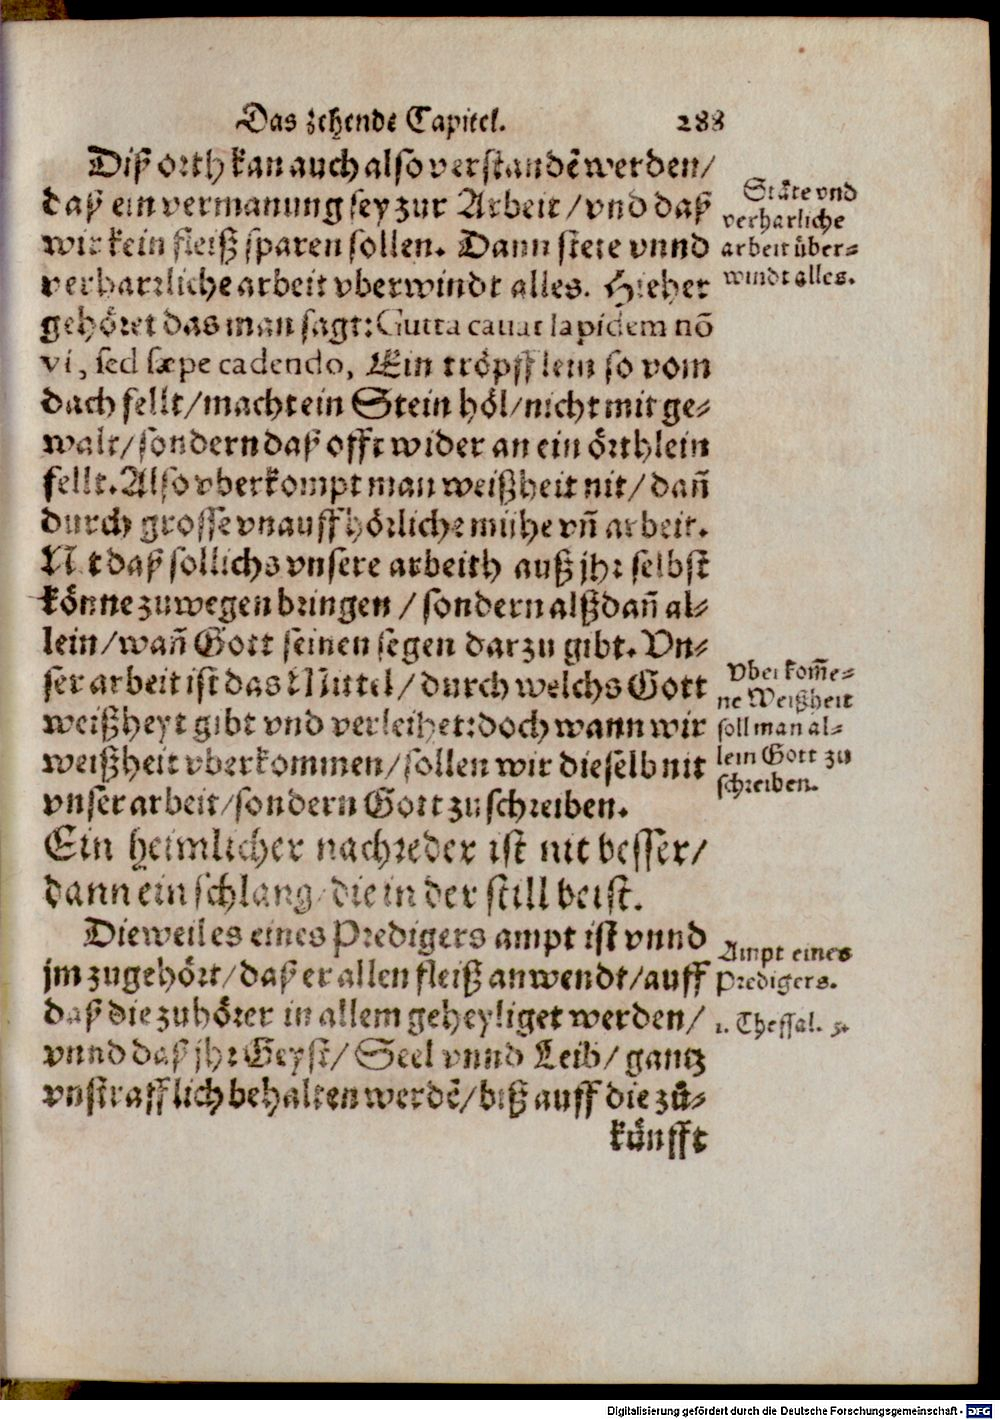 Das zehende Capitel. 288
Diß orth kan auch also verstandē werden/
daß ein vermanung sey zur Arbeit/vnd daß
wir kein fleiß sparen sollen. Dann stete vnnd
verharrliche arbeit vberwindt alles. Hieher
gehöret das man sagt: Gutta cauat lapidem nō
vi, sed sæpe cadendo, Ein tröpfflein so vom
dach fellt/macht ein Stein höl/nicht mit ge⸗
walt/sondern daß offt wider an ein örthlein
fellt. Also vberkompt man weißheit nit/dañ
durch grosse vnauffhörliche mühe vñ arbeit.
Nit daß sollichs vnsere arbeith auß jhr selbst
könne zuwegen bringen/sondern alßdañ al⸗
lein/wañ Gott seinen segen darzu gibt. Vn⸗
ser arbeit ist das Mittel/durch welchs Gott
weißheyt gibt vnd verleihet: doch wann wir
weißheit vberkommen/sollen wir dieselb nit
vnser arbeit/sondern Gott zuschreiben.
Ein heimlicher nachreder ist nit besser/
dann ein schlang/die in der still beist.
Dieweil es eines Predigers ampt ist vnnd
jm zugehört/daß er allen fleiß anwendt/auff
daß die zuhörer in allem geheyliget werden/
vnnd daß jhr Geyst/Seel vnnd Leib/gantz
vnsträfflich behalten werdē/biß auff die zů⸗
künfft
Stäte vnd
verharliche
arbeit über⸗
windt alles.
Vberkom̃e⸗
ne Weißheit
soll man al⸗
lein Gott zu
schreiben.
Ampt eines
Predigers.
1. Thessal. 5.
Digitalisierung gefördert durch die Deutsche Forschungsgemeinschaft - DFG